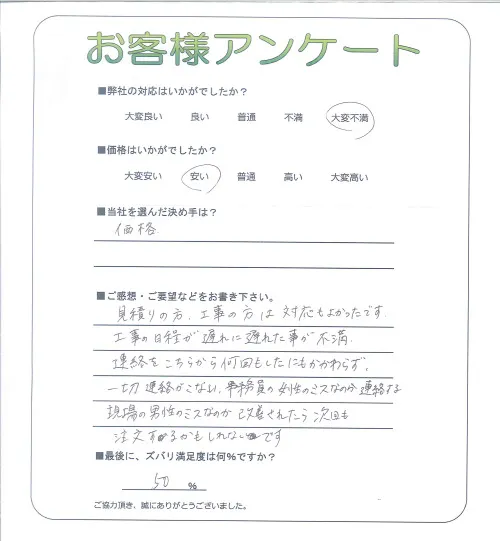 お客様アンケート
■弊社の対応はいかがでしたか？
大変良い 良い 普通 不満 大変不満
■価格はいかがでしたか？
大変安い 安い 普通 高い 大変高い
■当社を選んだ決め手は？
価格
■ご感想・ご要望などをお書き下さい。
見積りの方、工事の方は対応もよかったです
工事の日程が遅れに遅れた事が不満
連絡をこちらから何回もしたにもかかわらず、
一切連絡がこない、事務員の女性のミスなのか連絡する
現場の男性のミスなのか 改善されたら次回も
注文するかもしれないです
■最後に、ズバリ満足度は何%ですか？
50 %
ご協力頂き、誠にありがとうございました。